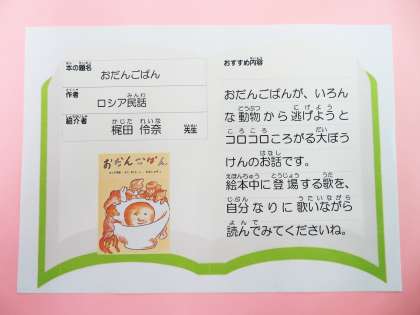 本の題名
おだんごぱん
作者
ロシア民話
紹介者
梶田 伶奈 先生
おだんごぱん
おすすめ内容
おだんごぱんが、いろん
な動物から逃げようと
コロコロころがる大ぼう
けんのお話です。
絵本中に登場する歌を、
自分なりに歌いながら
読んでみてくださいね。